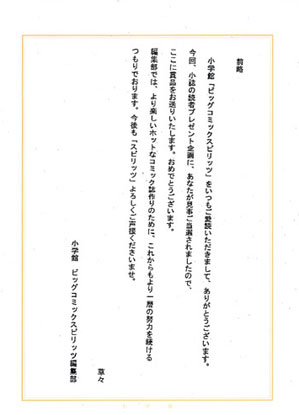 前略
小学館「ビッグコミックスピリッツ」をいつもご愛読いただきまして、ありがとうございます。
今回、小誌の読者プレゼント企画に、あなたが見事ご当選されましたので、
ここに賞品をお送りいたします。おめでとうございます。
編集部では、より楽しいホットなコミック誌作りのために、これからもより一層の努力を続ける
つもりでおります。今後も「スピリッツ」よろしくご声援くださいませ。
草々
小学館　ビッグコミックスピリッツ編集部